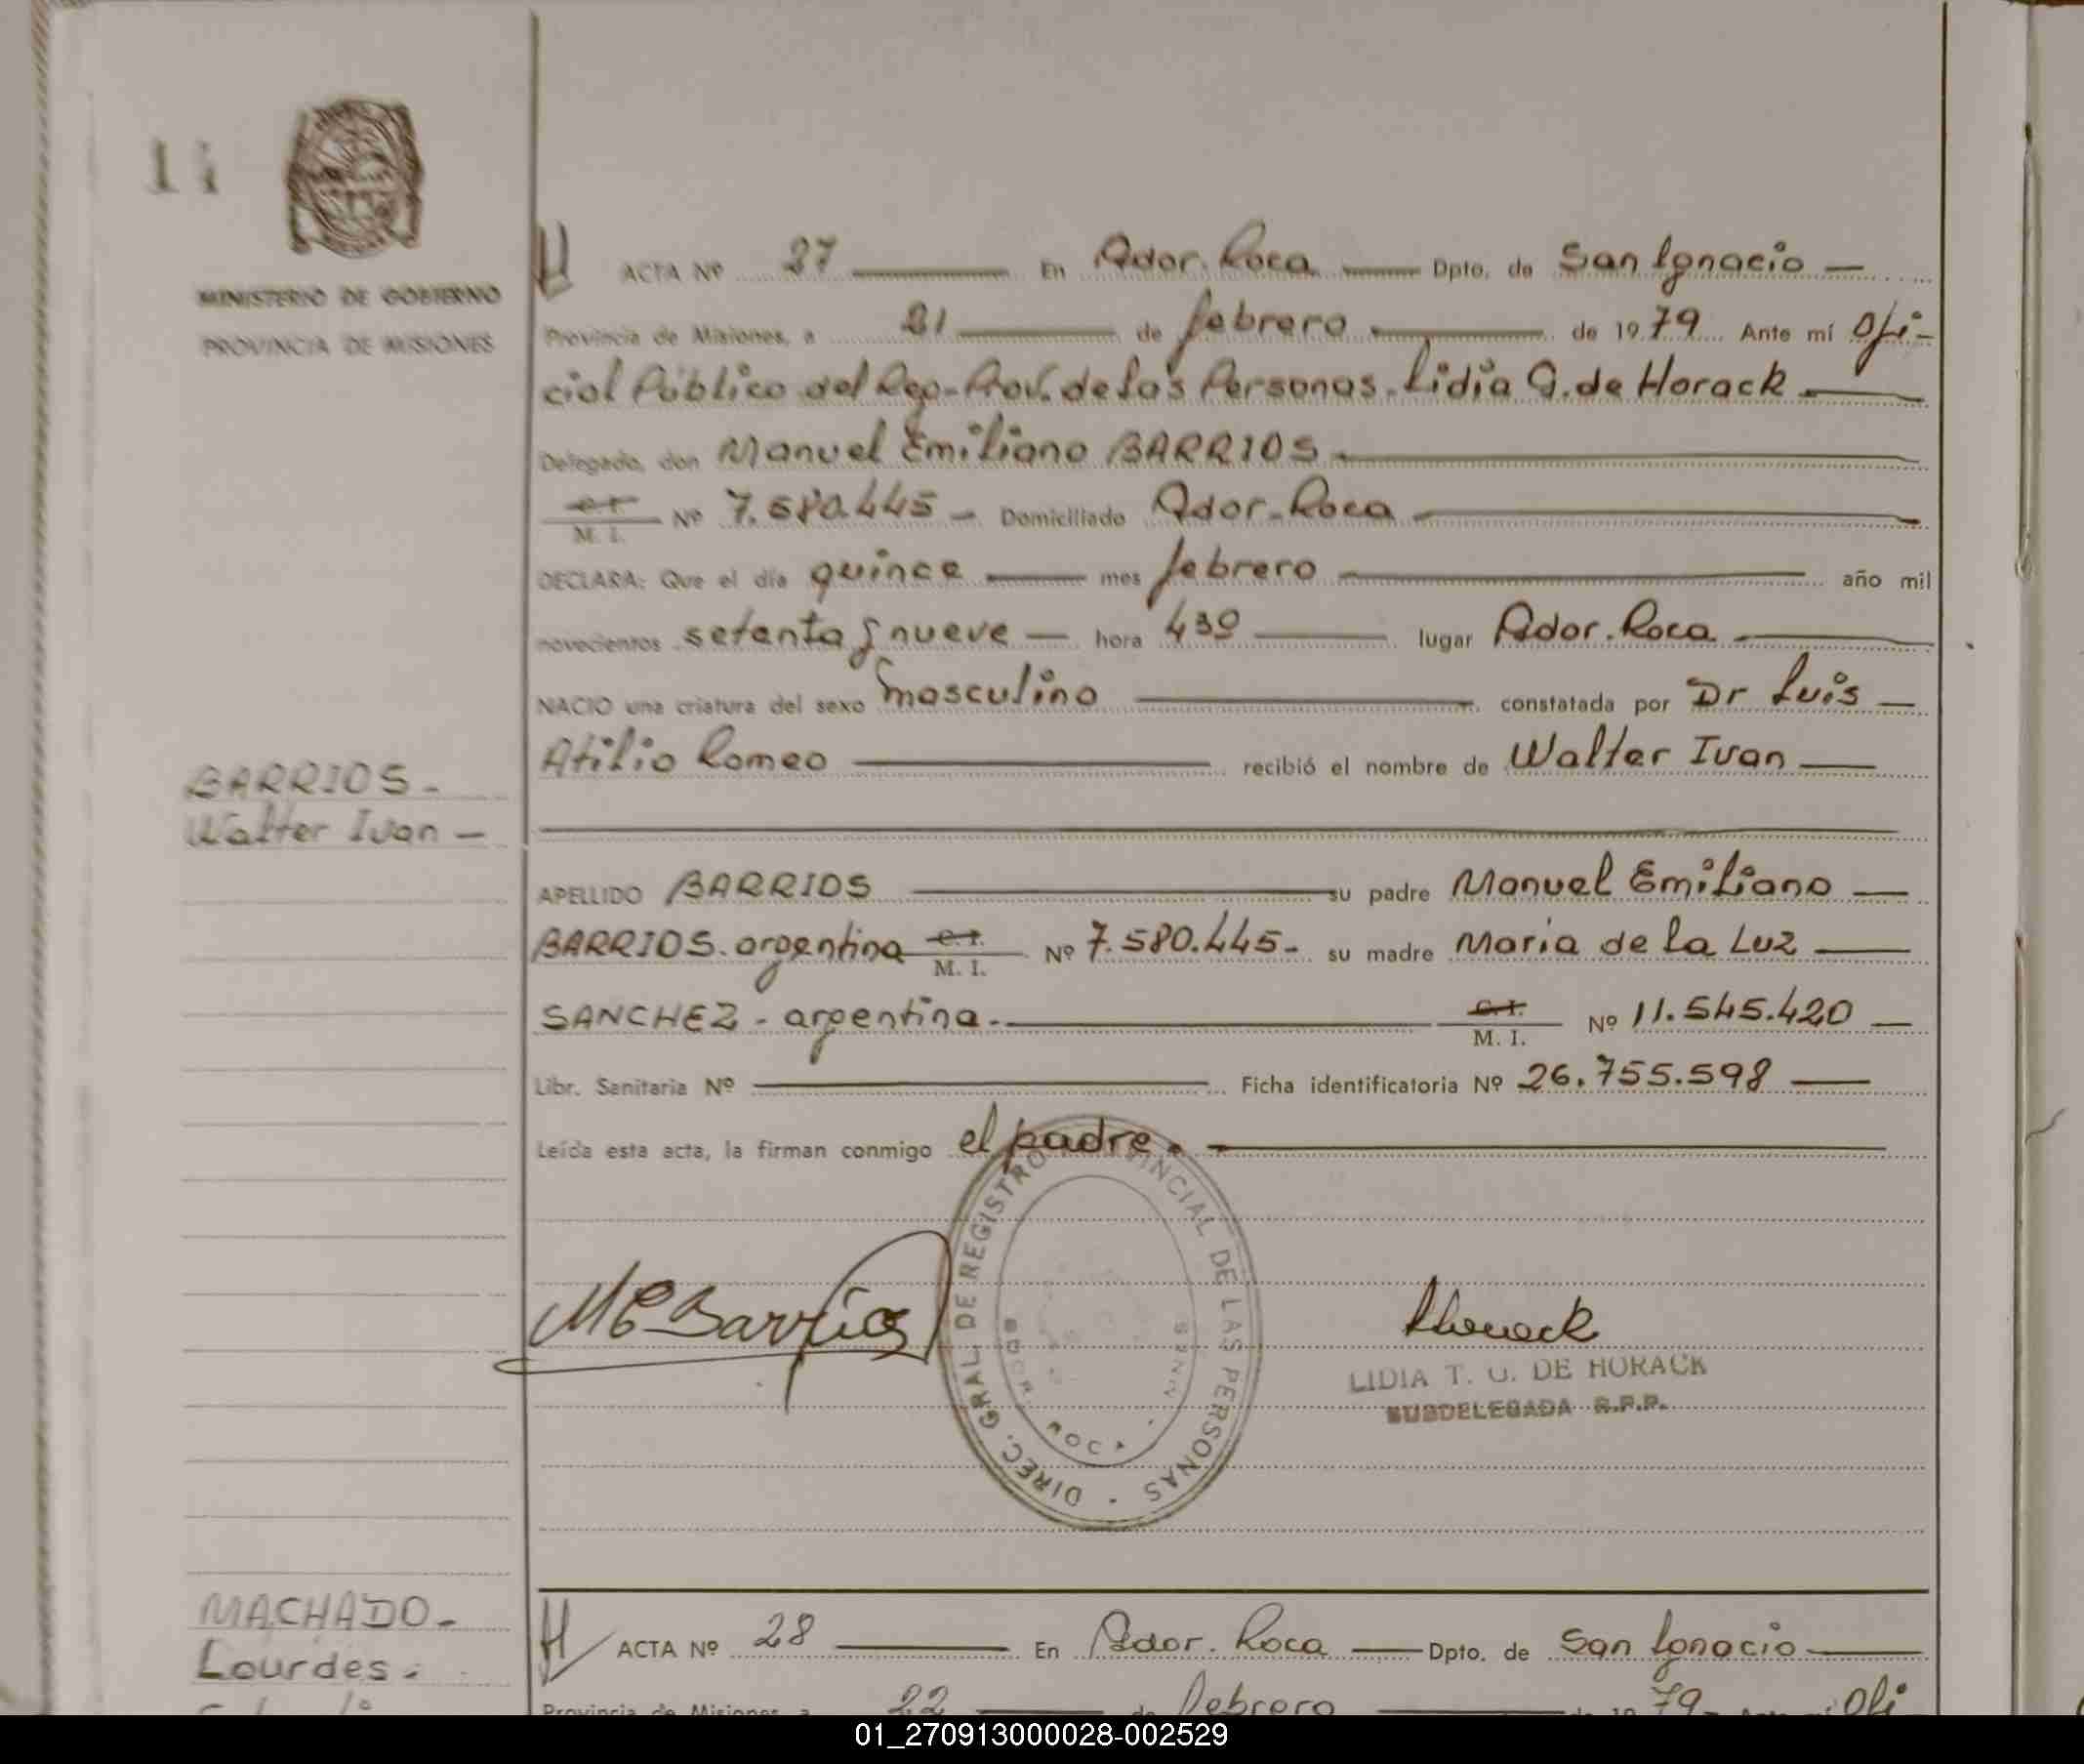 11
MINISTERIO DE GOBIERNO
PROVINCIA DE MISIONES
ACTA Nº 27 En Gdor. Roca Dpto. de San Ignacio
Provincia de Misiones, a 21 de febrero de 1979 Ante mí Ofi-
cial Público del Reg. Prov. de las Personas. Lidia G. de Horack
Delegado, don Manuel Emiliano BARRIOS
C.I. M. I. Nº 7.580.445 - Domiciliado Gdor. Roca
DECLARA: Que el día quince mes febrero año mil
novecientos setenta y nueve hora 4 30 lugar Gdor. Roca
NACIO una criatura del sexo masculino constatada por Dr Luis
Atilio Romeo recibió el nombre de Walter Ivan
BARRIOS -
Walter Ivan -
APELLIDO BARRIOS su padre Manuel Emiliano
BARRIOS. argentina C.I. M. I. Nº 7.580.445- su madre Maria de la Luz
SANCHEZ - argentina - C.I. M. I. Nº 11.545.420
Libr. Sanitaria Nº Ficha identificatoria Nº 26.755.598
Leída esta acta, la firman conmigo el padre.
DIREC. GRAL. DE REGISTRO PROVINCIAL DE LAS PERSONAS
GDOR. ROCA
MECBarrios
LHorack
LIDIA T. G. DE HORACK
SUBDELEGADA R.P.P.
MACHADO -
Lourdes.
ACTA Nº 28 En Gdor. Roca Dpto. de San Ignacio
Provincia de Misiones, a 22 de febrero de 1979 Ante mí Ofi
01_270913000028-002529